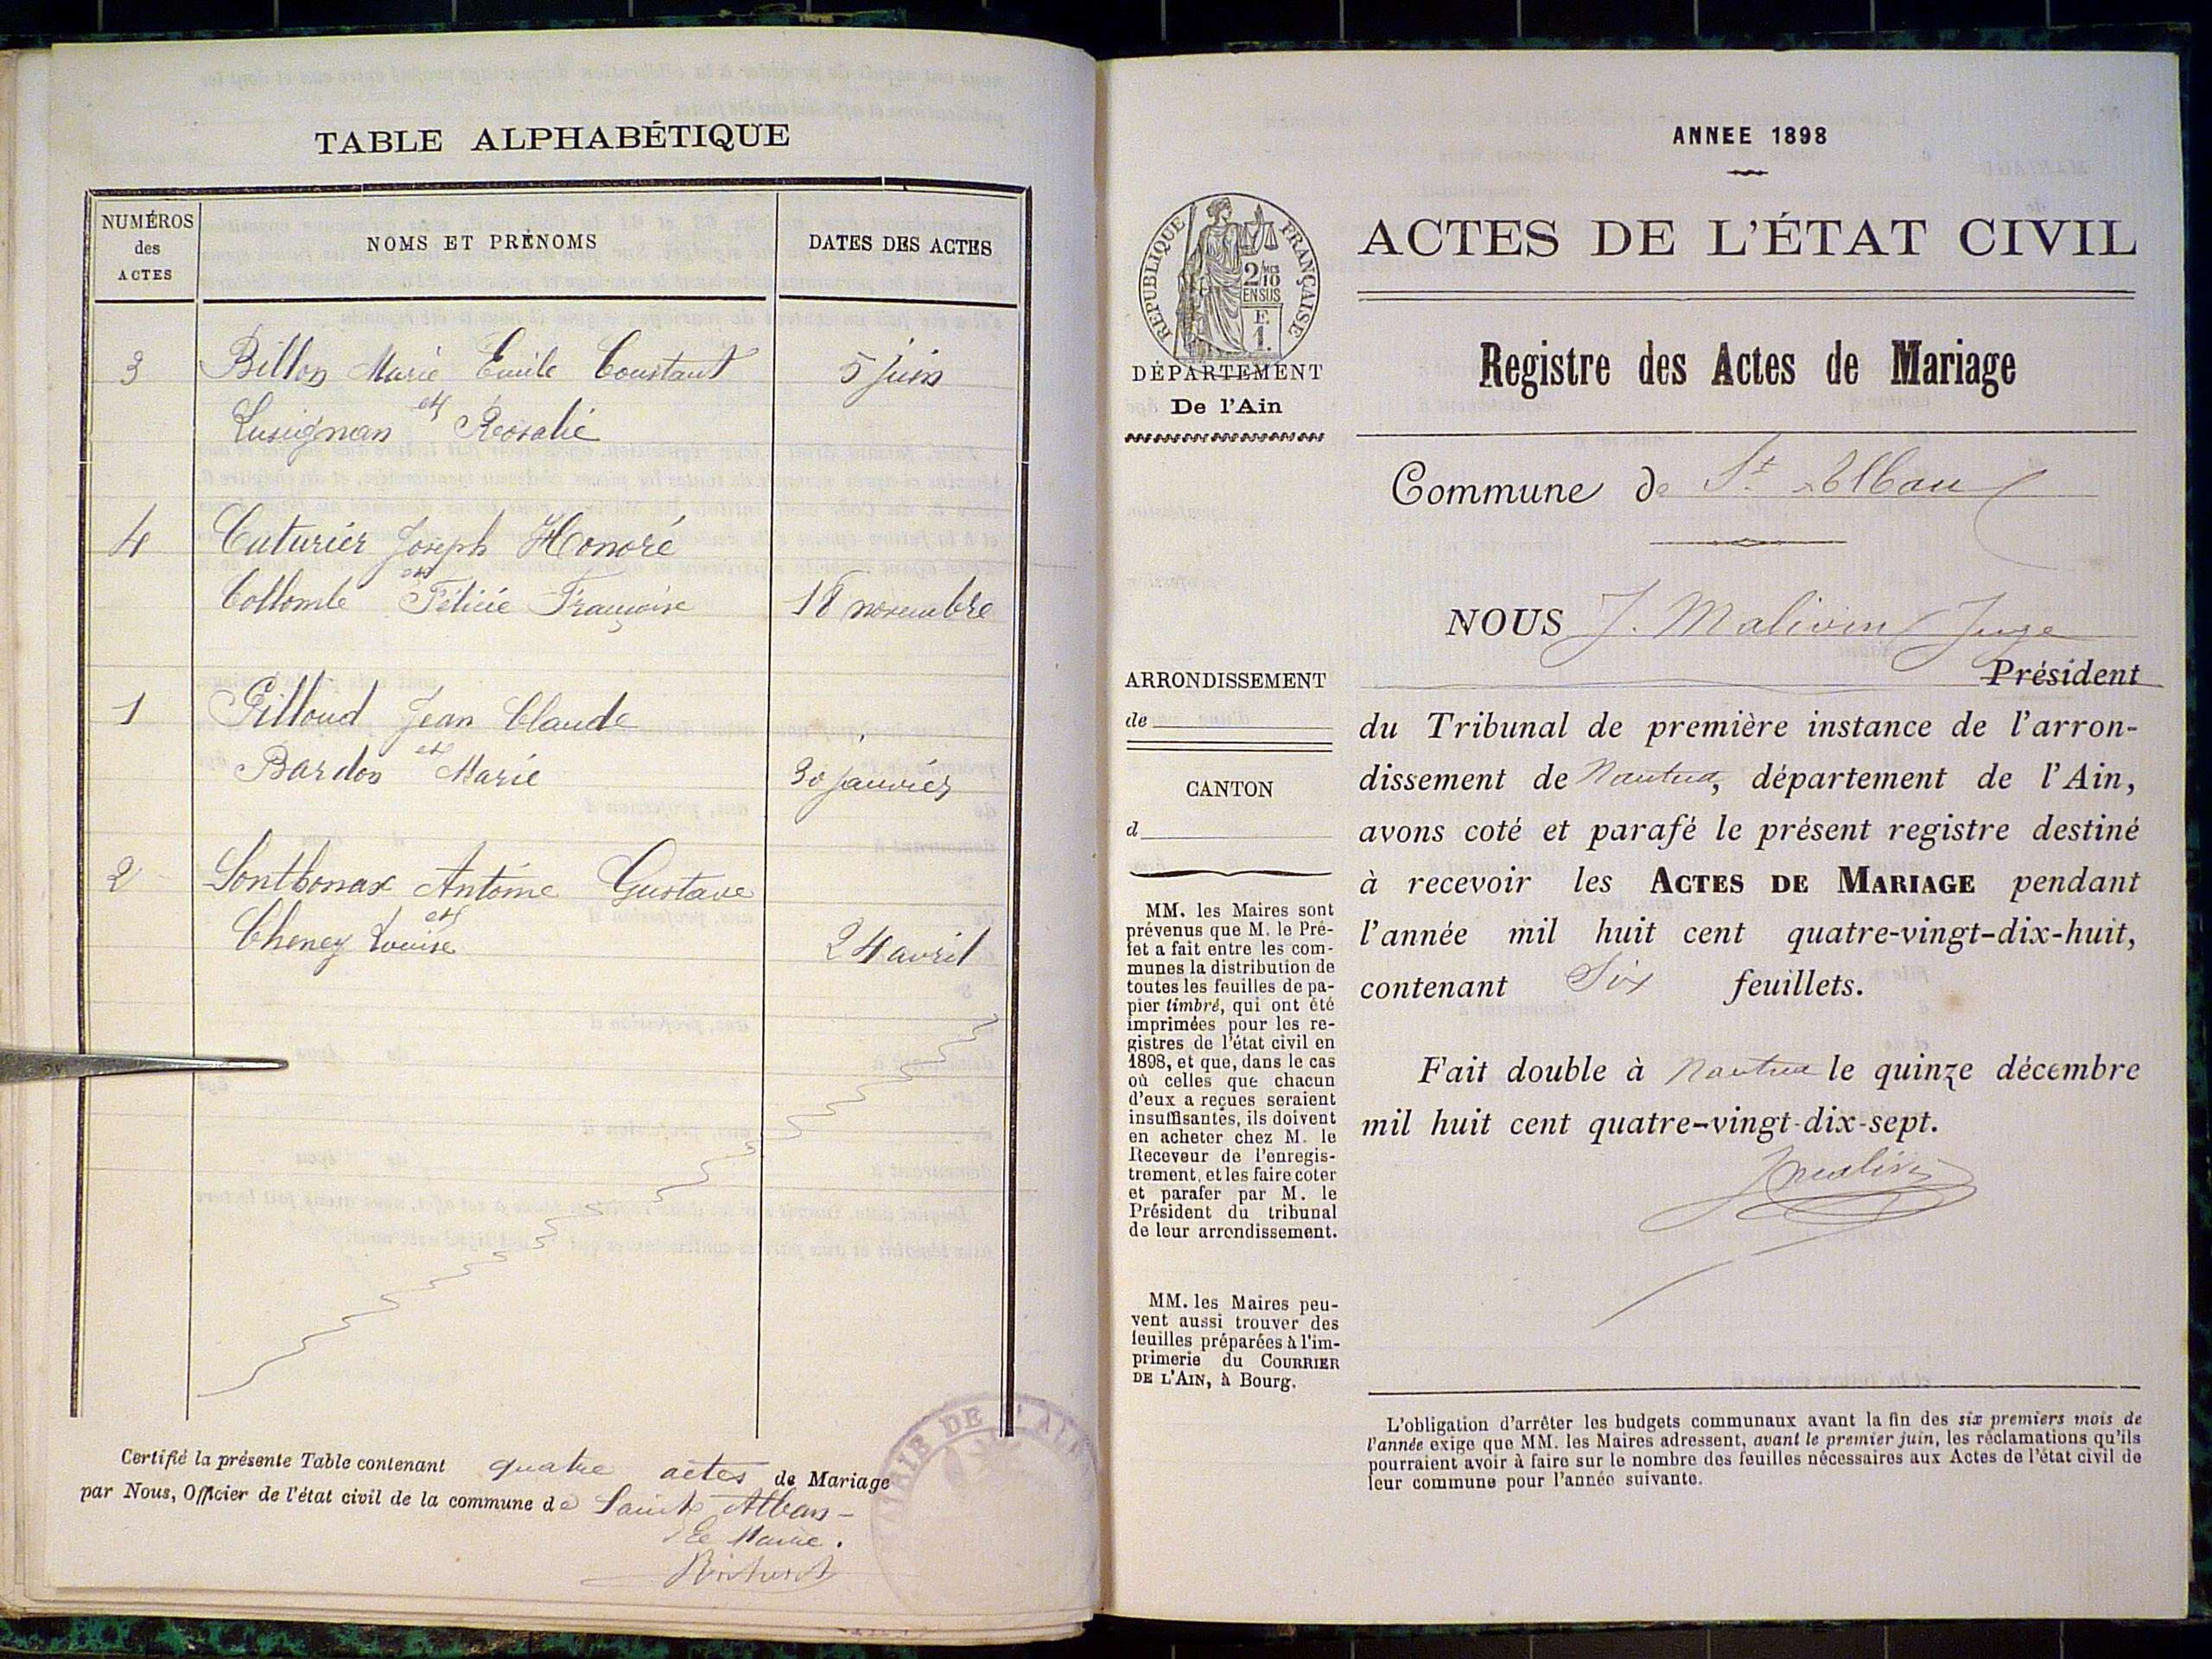 TABLE ALPHABÉTIQUE
NUMÉROS des ACTES
NOMS ET PRÉNOMS
DATES DES ACTES
3 Billon Marie Emile Constant 5 juin
et
Lusignan Rosalie
4 Cuturier Joseph Honoré
et
Collomb Félicie Françoise 18 novembre
1 Pilloud Jean Claude
et
Bardon Marie 30 janvier
2 Sonthonax Antoine Gustave
et
Cheney Louise 24 avril
Certifié la présente Table contenant quatre actes de Mariage
par Nous, Officier de l'état civil de la commune de Saint Alban
Le Maire.
MAIRIE DE
ANNEE 1898
REPUBLIQUE FRANÇAISE
2/10
EN SUS
E.
1.
ACTES DE L'ÉTAT CIVIL
DÉPARTEMENT
De l'Ain
Registre des Actes de Mariage
Commune de St Alban
NOUS J. Malivin Juge
Président
ARRONDISSEMENT
de
CANTON
d
du Tribunal de première instance de l'arron-
dissement de Nantua, département de l'Ain,
avons coté et parafé le présent registre destiné
à recevoir les ACTES DE MARIAGE pendant
l'année mil huit cent quatre-vingt-dix-huit,
contenant Six feuillets.
Fait double à Nantua le quinze décembre
mil huit cent quatre-vingt-dix-sept.
MM. les Maires sont
prévenus que M. le Pré-
fet a fait entre les com-
munes la distribution de
toutes les feuilles de pa-
pier timbré, qui ont été
imprimées pour les re-
gistres de l'état civil en
1898, et que, dans le cas
où celles que chacun
d'eux a reçues seraient
insuffisantes, ils doivent
en acheter chez M. le
Receveur de l'enregis-
trement, et les faire coter
et parafer par M. le
Président du tribunal
de leur arrondissement.
MM. les Maires peu-
vent aussi trouver des
feuilles préparées à l'im-
primerie du COURRIER
DE L'AIN, à Bourg.
L'obligation d'arrêter les budgets communaux avant la fin des six premiers mois de
l'année exige que MM. les Maires adressent, avant le premier juin, les réclamations qu'ils
pourraient avoir à faire sur le nombre des feuilles nécessaires aux Actes de l'état civil de
leur commune pour l'année suivante.